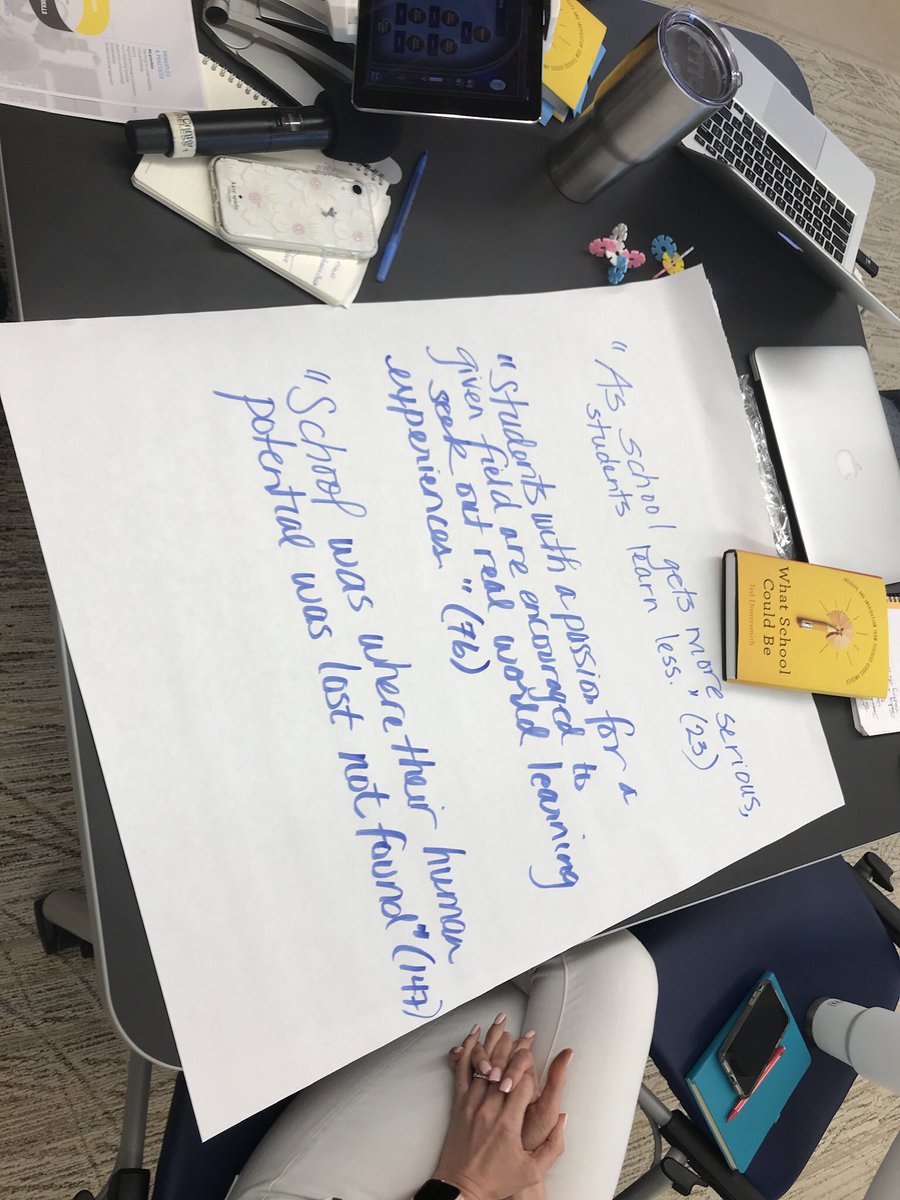 "As school gets more serious,
students learn less." (23)
"Students with a passion for a
given field are encouraged to
seek out real world learning
experiences." (76)
"School was where their human
potential was lost not found" (147)
What School
Could Be
Ted Dintersmith
PRINCIPLES
& PRACTICES
kate spade